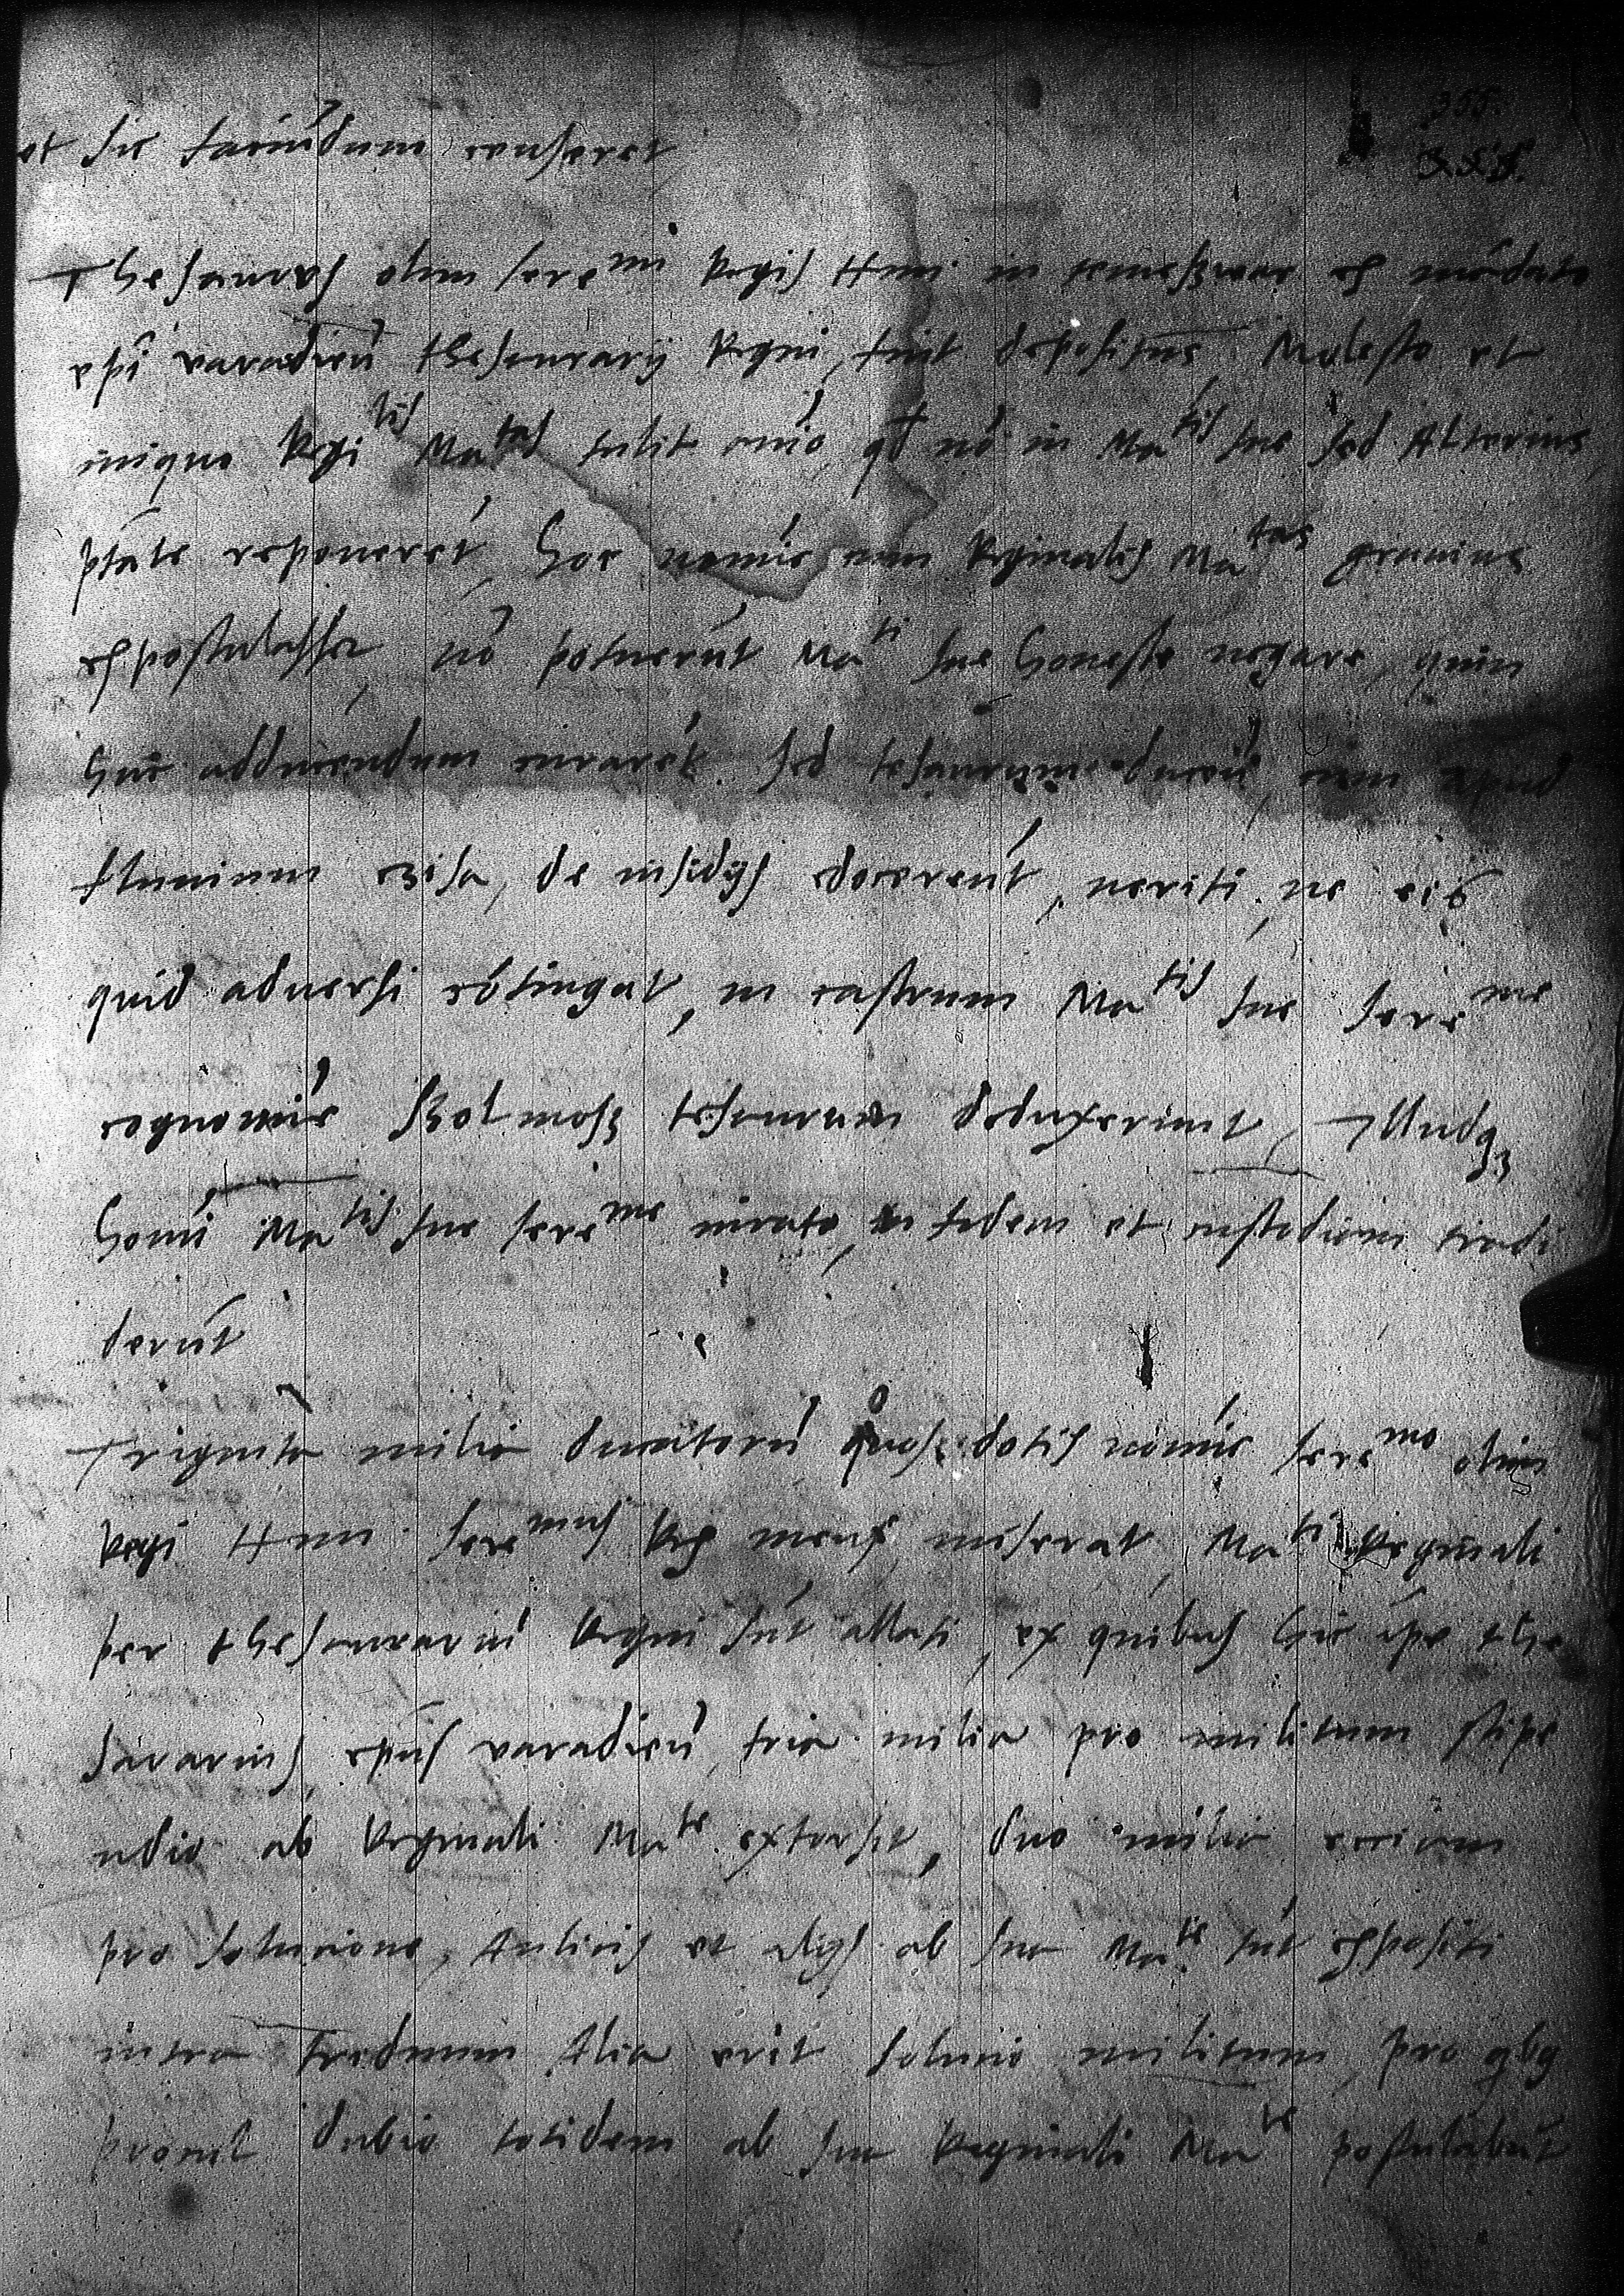 et sic faciúdum censeret
Thesaurus olim sere^mi Regis Hun: in temeszwar ex mãdato
epi varadieñ thesaurarÿ Regni, fuit depositus Moleste et
inique Regi^tis Ma^tas tulit animo, qd nõ in Ma^tis sue sed Alterius
ptãte reponeret, hoc nomie cum Reginalis Ma^tas gravius
expostulasset, nõ potuerút Ma^ti sue honeste negare, quin
huc adducendum curarét. Sed tesaurum ducén, cum apud
fluvium tiza, de insidÿs edocerent, veriti, ne eis
quid adversi cõtingat, in castrum Ma^tis sue sere^me
cognomie Zolmosz tesaurum deduxerunt, Illudq3
homi Ma^tis sue sere^me iurato, in fidem et custodiam tradi
derút
Triginta milia ducatorú quos dotis nomie sere^mo olim
Regi Hun: sere^mus Rex meus, miserat, Ma^ti Reginali
per thesaurariú Regni sút allati, ex quibus hic ipe the
saurarius, epus varadieñ, tria milia pro militum stipe
ndio ab Reginali Ma^te extorsit, duo milia eciam
pro solucione, Aulicis et alÿs ab sua Ma^te sút expositi
intra triduum Alia erit solucio militum, pro qbq
procul dubio totidem ab sua Reginali Ma^te postulabút